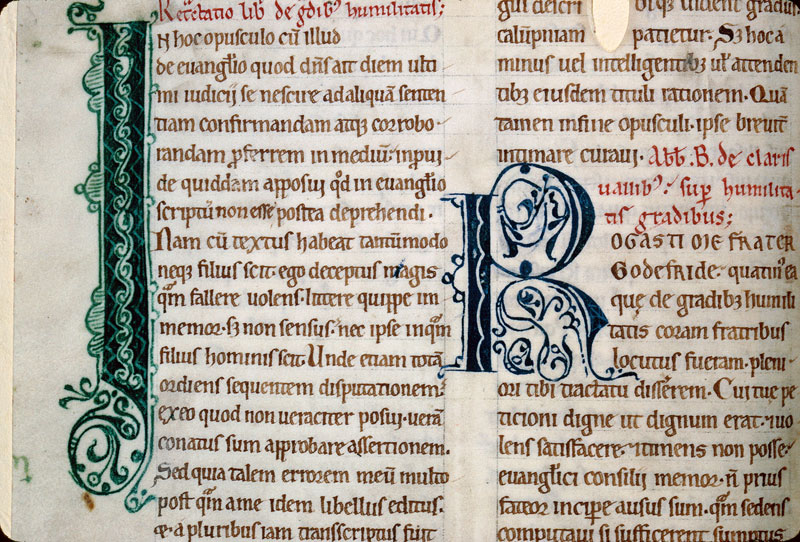 Retractatio lib de gdib humilitatis;
IN hoc opusculo cū illud
de euangl̄io quod dn̄s ait diem ulti
mi iudicij se nescire ad aliquā senten
tiam confirmandam atq; corrobo
randam p̱ferrem in mediū: inpui
de quiddam apposui qd̓ in euangl̄io
scriptū non esse postea deprehendi.
Nam cū textus habeat tantūmodo
neq; filius scit: ego deceptus magis
qm̄ fallere uolens: littere quippe im
memor. sz non sensus: nec ipse inqm̄
filius hominis scit. Unde etiam totā
ordiens sequentem disputationem:
ex eo quod non ueraciter posui. uerā
conatus sum approbare assertionem.
Sed quia talem errorem meū multo
post qm̄ a me idem libellus editus.
& a pluribus iam transscriptus fuit
qui videri
calūpniam patietur. Sz hoc a
minus uel intelligentibz ul̓ attenden
tibz eiusdem tituli rationem. Quā
tamen in fine opusculi. ipse breuit̓
intimare curaui. Abb̄. B. de claris
uallib᾽: sup̱ humilita
tis gradibus;
ROGASTI ME FRATER
GODEFRIDE. quatin᾽ ea
quę de gradibz humili
tatis coram fratribus
locutus fueram. pleni
ori tibi tractatu disser̄em. Cui tuę pe
ticioni digne ut dignum erat. uo
lens satisfacere. & timens non posse
euanglici consilij memor. n̄ prius
fateor incipe ausus sum. qm̄ sedens
computaui si sufficerent sumptus